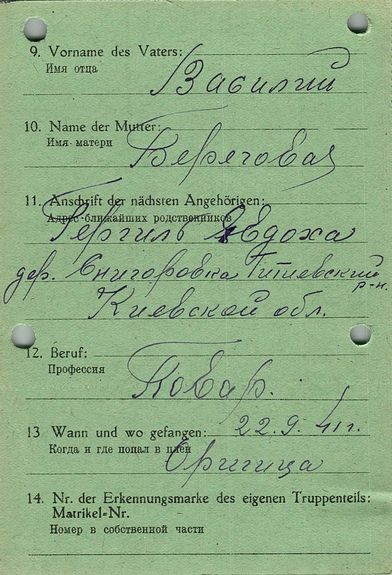 9. Vorname des Vaters:
Имя отца
Василий
10. Name der Mutter:
Имя матери
Береговая
11. Anschrift der nächsten Angehörigen:
Адрес ближайших родственников
Евдоха
дер. Снигоровка Титиевский
р-н.
Киевской обл.
12. Beruf:
Профессия
Повар.
13 Wann und wo gefangen:
22.9.41г.
Когда и где попал в плен
Оржица
14. Nr. der Erkennungsmarke des eigenen Truppenteils:
Matrikel-Nr.
Номер в собственной части